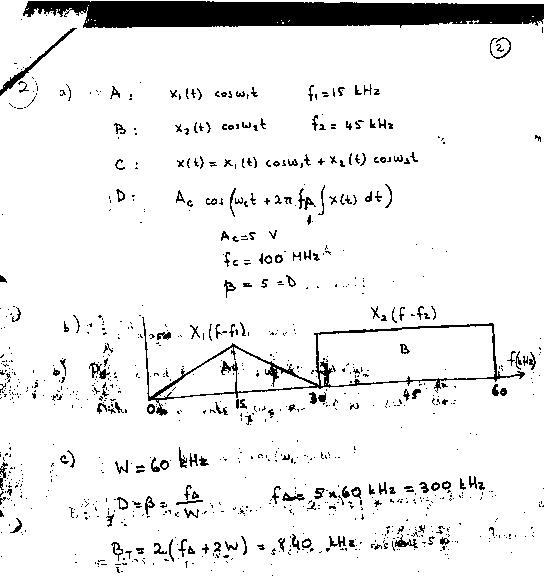 2
2 a) A : x₁(t) cosω₁t f₁ = 15 kHz
B : x₂(t) cosω₂t f₂ = 45 kHz
C : x(t) = x₁(t) cosω₁t + x₂(t) cosω₂t
D : Ac cos(ωct + 2π fΔ ∫ x(t) dt)
Ac = 5 V
fc = 100 MHz
β = 5 = D
b) X₁(f-f₁) X₂(f-f₂)
A B f(kHz)
0 15 30 45 60
c) W = 60 kHz
D = β = fΔ/W fΔ = 5 x 60 kHz = 300 kHz
B_T = 2(fΔ + 2W) = 840 kHz